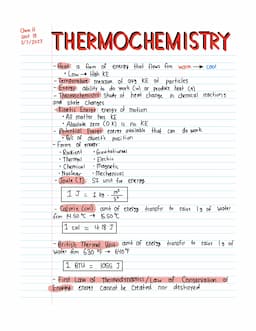 Chem 11
THERMOCHEMISTRY
- Heat a form of energy that flows from warm → cool
• Low → High KE
- Temperature measure of avg KE of particles
- Energy ability to do work (w) or product heat (q)
- Thermochemistry study of heat change in chemical reactions
and state changes
- Kinetic Energy energy of motion
• All matter has KE
• Absolute zero (0 K) is no KE
- Potential Energy energy available that can do work
- Forms of energy
• Radiant • Gravitational
• Thermal • Electric
• Chemical • Magnetic
• Nuclear • Mechanical
- Joule (J) SI unit for energy
1 J = 1 kg · m²/s²
- Calorie (cal) amt of energy transfer to raise 1g of water
from 14.5°C → 15.5°C
1 cal = 4.18 J
- British Thermal Unit amt of energy transfer to raise 1 of
water from 63°F → 64°F
1 BTU = 1055 J
- First Law of Thermodynamics / Law of Conservation of
Energy energy cannot be created nor destroyed